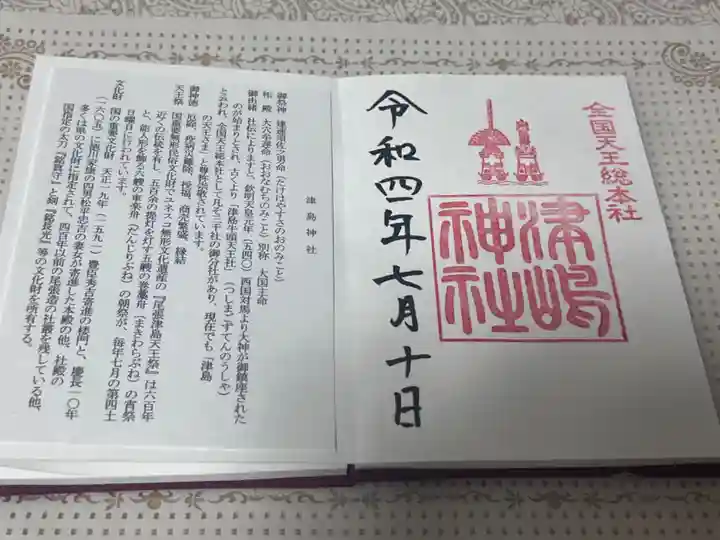 全国天王総本社
津嶋
神社
令和四年七月十日
津島神社
御祭神 建速須佐之男命(たけはやすさのおのみこと)
相殿 大穴牟遅命(おおなむちのみこと)別称 大国主命
御由緒 社伝によりますと、欽明天皇元年(五四〇)西国対馬より大神が御鎮座された
のが始まりとされ、古くより「津島牛頭天王社」(つしまごずてんのうしゃ)
と云われ、全国天王総本社として凡そ三千社の御分社があり、現在でも「津島
の天王さま」と尊称崇敬されています。
御神徳 厄除、疫病災難除、授福、商売繁盛、縁結
天王祭 国重要無形民俗文化財でユネスコ無形文化遺産の『尾張津島天王祭』は六百年
近くの伝統を有し、五百余の提灯を灯す五艘の巻藁舟(まきわらぶね)の宵祭
と、能人形を飾る六艘の車楽舟(だんじりぶね)の朝祭が、毎年七月の第四土
日曜日に行われています。
文化財 国の重要文化財 天正一九年(一五九一)豊臣秀吉寄進の楼門と、慶長一〇年
(一六〇五)に徳川家康の四男松平忠吉の妻女が寄進した本殿の他、社殿の
多くは県の文化財に指定されて、四百年以前の尾張造の社叢を残している他、
国指定の太刀『銘真守』と剣『銘長光』等の文化財を所有する。